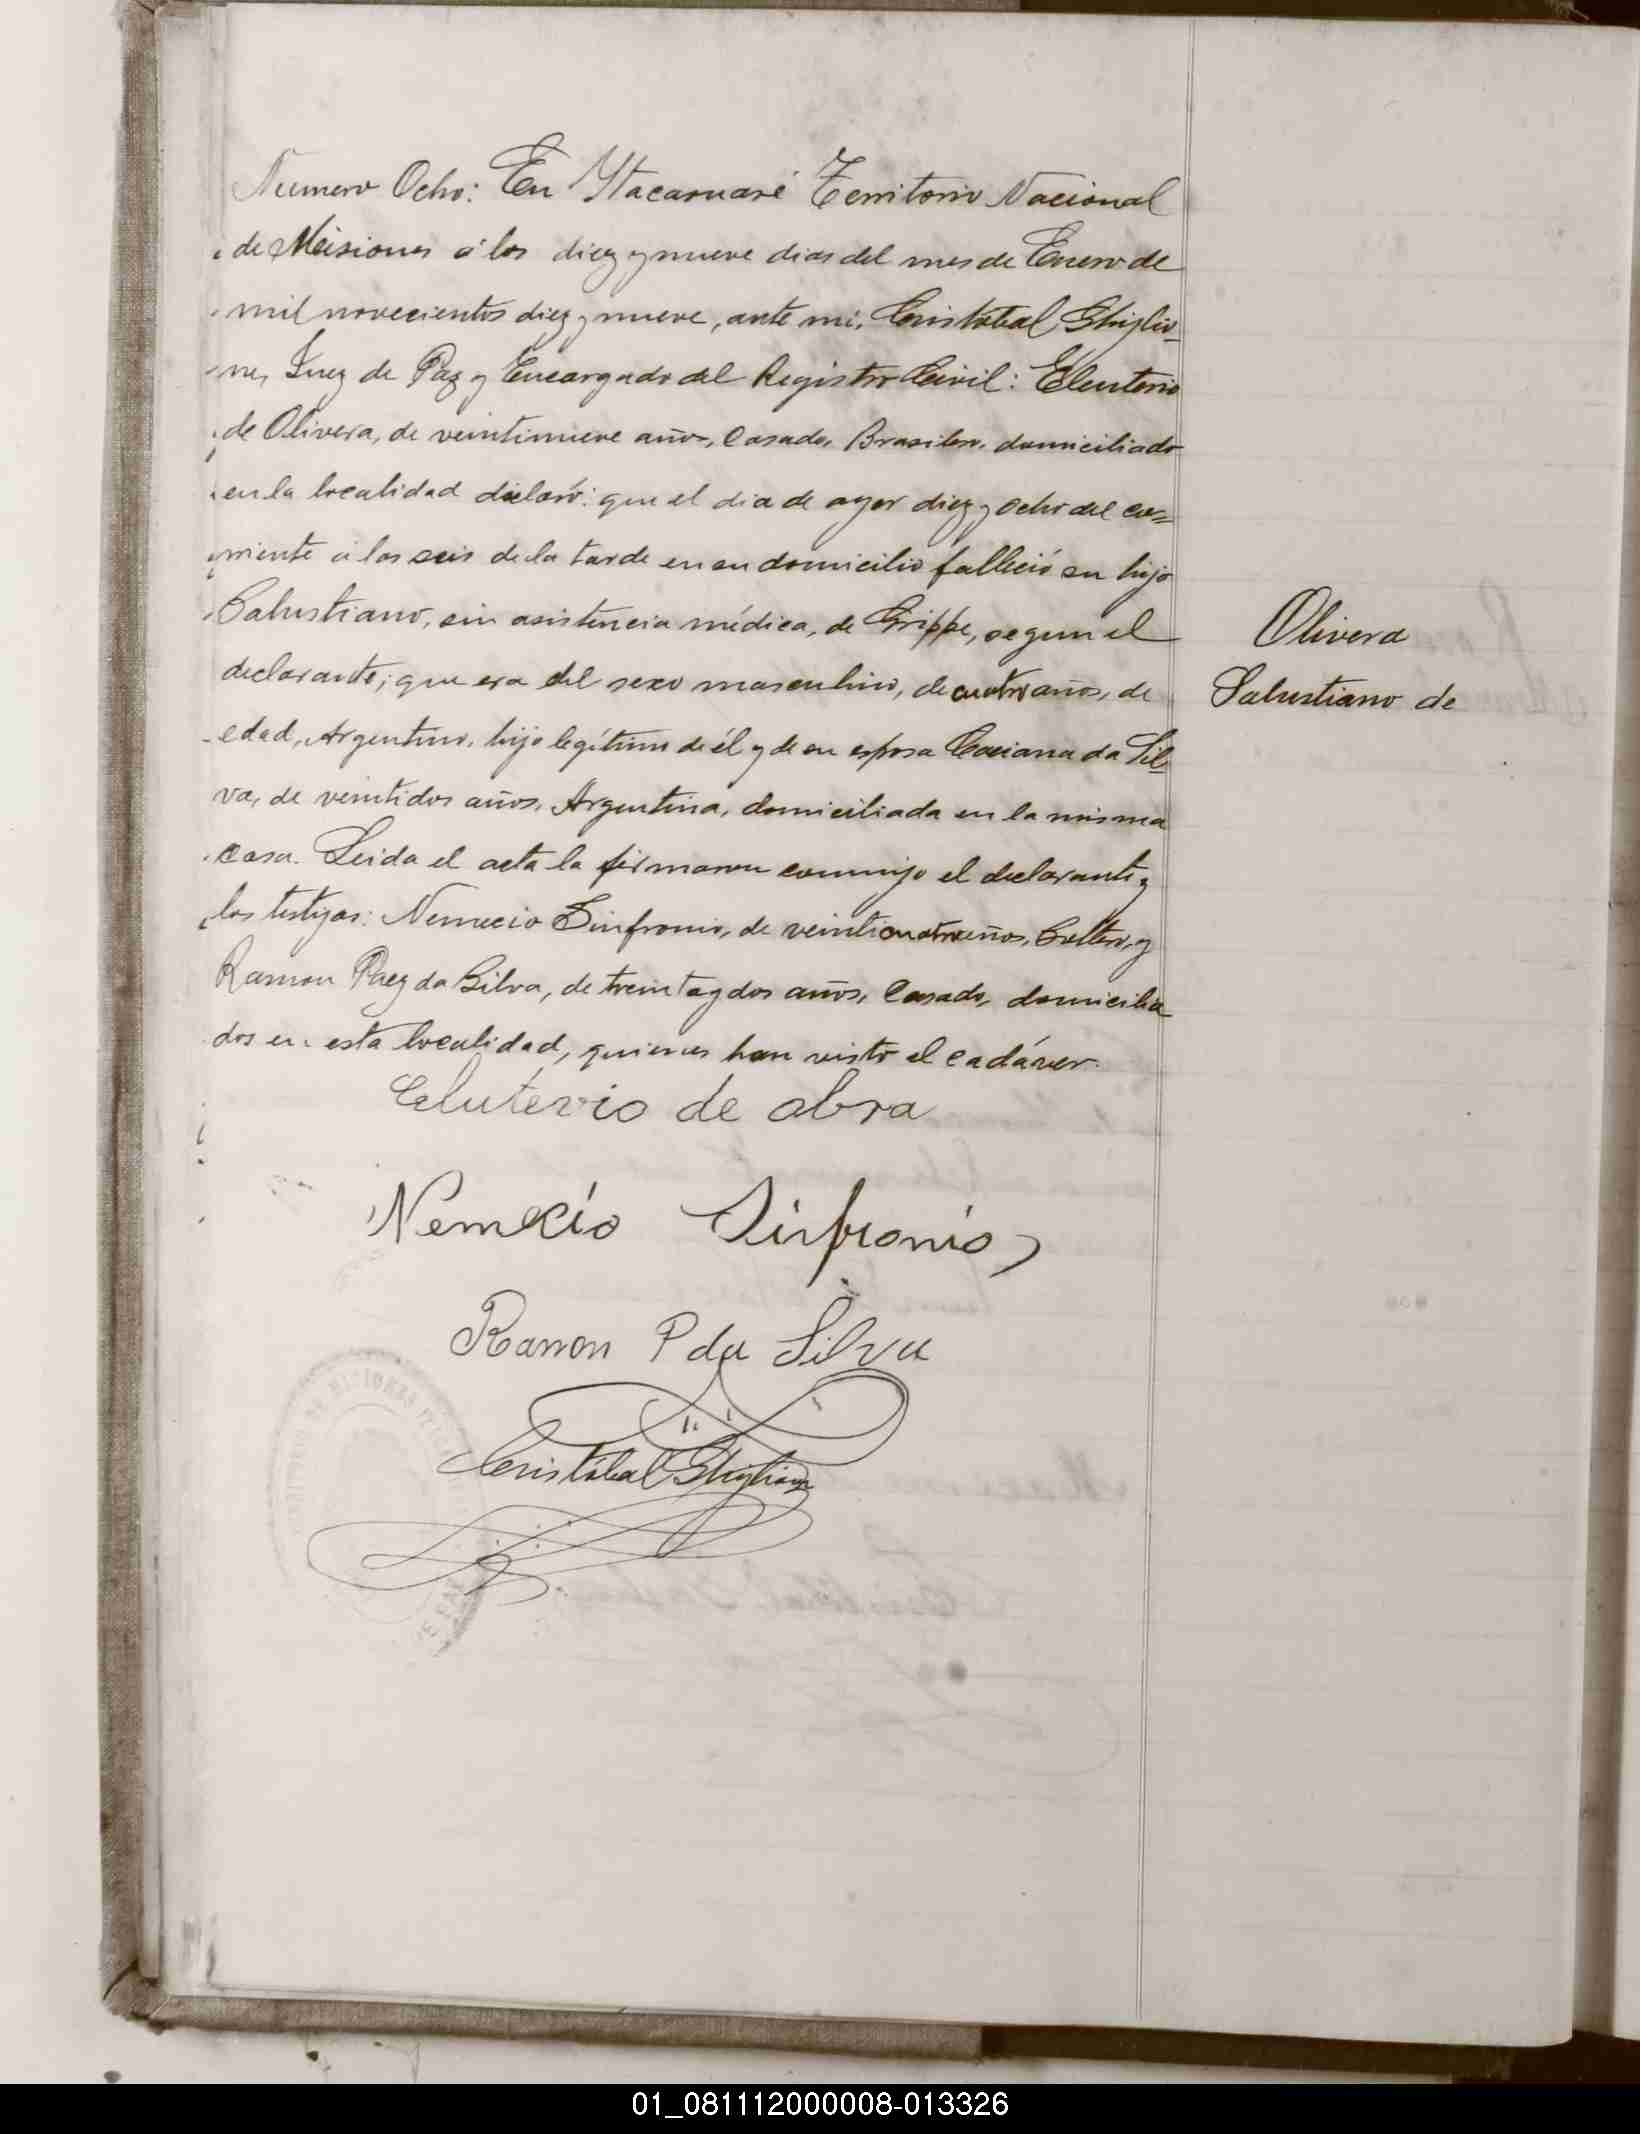 Numero Ocho: En Ytacaruaré Territorio Nacional
de Misiones á los diez y nueve dias del mes de Enero de
mil novecientos diez y nueve, ante mi, Cristóbal Ghiglio-
ne, Juez de Paz y Encargado del Registro Civil: Eleuterio
de Olivera, de veintinueve años, Casado, Brasilero, domiciliado
en la localidad declaró: que el dia de ayer diez y ocho del co-
rriente á las seis de la tarde en su domicilio falleció su hijo
Salustiano, sin asistencia médica, de Grippe, segun el
declarante; que era del sexo masculino, de cuatro años, de
edad, Argentino, hijo legítimo de él y de su esposa Casiana da Sil-
va, de veintidos años, Argentina, domiciliada en la misma
casa. Leida el acta la firmaron conmigo el declarante y
los testigos: Nemecio Sinfronio, de veinticuatro años, Soltero, y
Ramon Paez da Silva, de treinta y dos años, Casado, domicilia
dos en esta localidad, quienes han visto el cadáver.
Olivera
Salustiano de
Elutevio de abra
Nemecio Sinfronio
Ramon P da Silva
Cristóbal Ghiglione
01_081112000008-013326